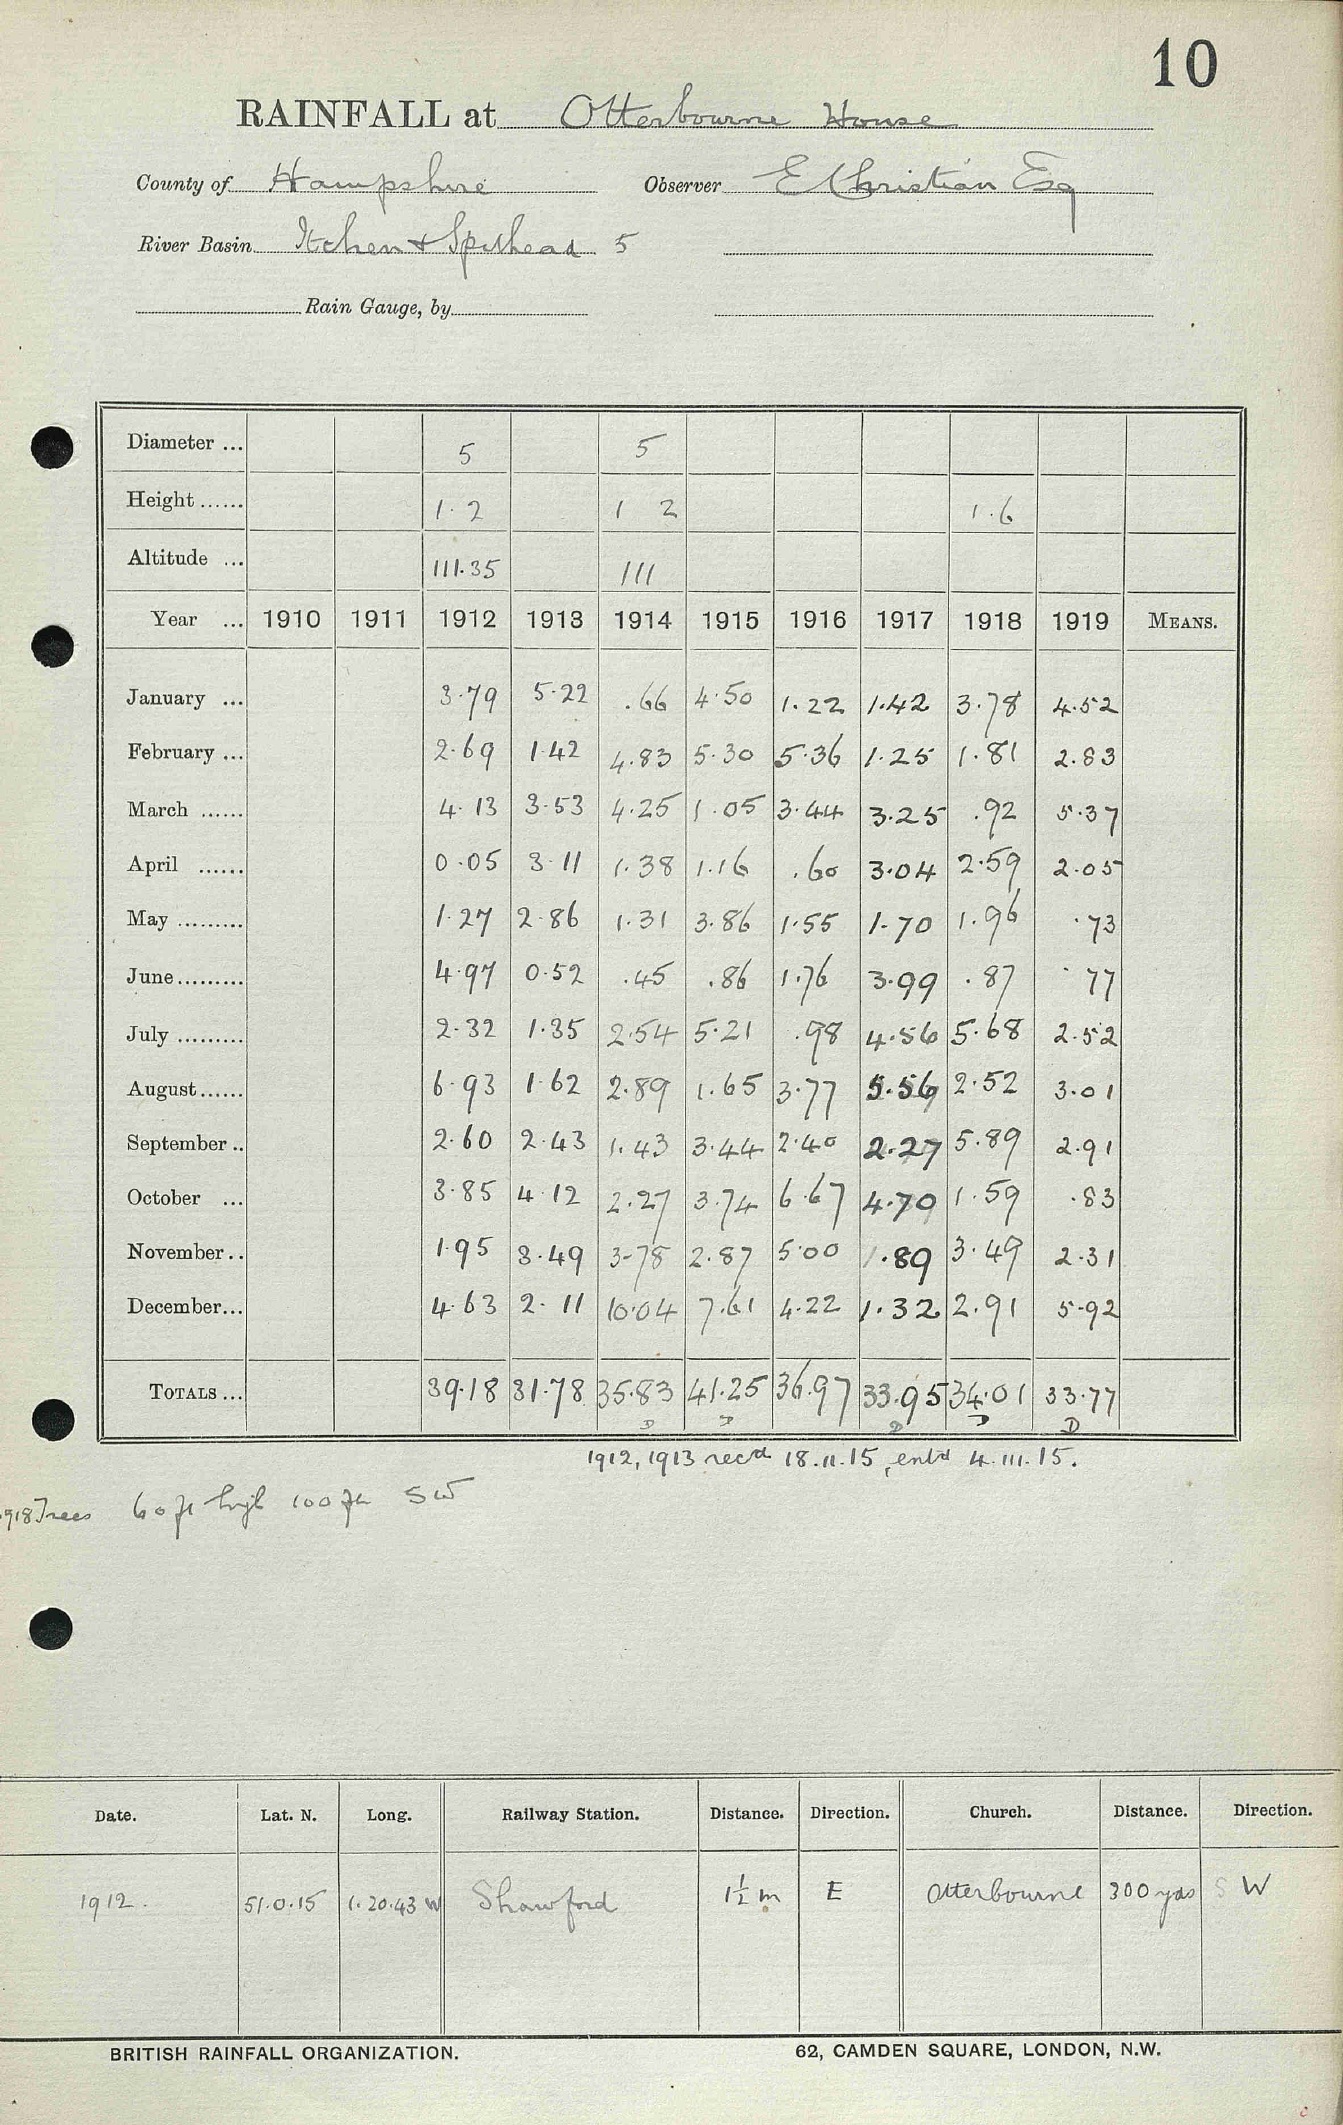 10
RAINFALL at Otterbourne House
County of Hampshire Observer E Christian Esq
River Basin Itchen & Spithead 5
Rain Gauge, by
Diameter ... 5 5
Height ...... 1.2 1 2 1.6
Altitude ... 111.35 111
Year ... 1910 1911 1912 1913 1914 1915 1916 1917 1918 1919 MEANS.
January ... 3.79 5.22 .66 4.50 1.22 1.42 3.78 4.52
February ... 2.69 1.42 4.83 5.30 5.36 1.25 1.81 2.83
March ...... 4.13 3.53 4.25 1.05 3.44 3.25 .92 5.37
April ...... 0.05 3.11 1.38 1.16 .60 3.04 2.59 2.05
May ......... 1.27 2.86 1.31 3.86 1.55 1.70 1.96 .73
June ......... 4.97 0.52 .45 .86 1.76 3.99 .87 .77
July ......... 2.32 1.35 2.54 5.21 .98 4.56 5.68 2.52
August ...... 6.93 1.62 2.89 1.65 3.77 5.56 2.52 3.01
September .. 2.60 2.43 1.43 3.44 2.40 2.27 5.89 2.91
October ... 3.85 4.12 2.27 3.74 6.67 4.70 1.59 .83
November .. 1.95 3.49 3.78 2.87 5.00 1.89 3.49 2.31
December ... 4.63 2.11 10.04 7.61 4.22 1.32 2.91 5.92
TOTALS ... 39.18 31.78 35.83 41.25 36.97 33.95 34.01 33.77
D D D D D
1912, 1913 recd 18.II.15, entd 4.III.15.
1918 Trees 60 ft high 100 ft SW
Date. Lat. N. Long. Railway Station. Distance. Direction. Church. Distance. Direction.
1912. 51.0.15 1.20.43 W Shawford 1½ m E Otterbourne 300 yds S W
BRITISH RAINFALL ORGANIZATION. 62, CAMDEN SQUARE, LONDON, N.W.